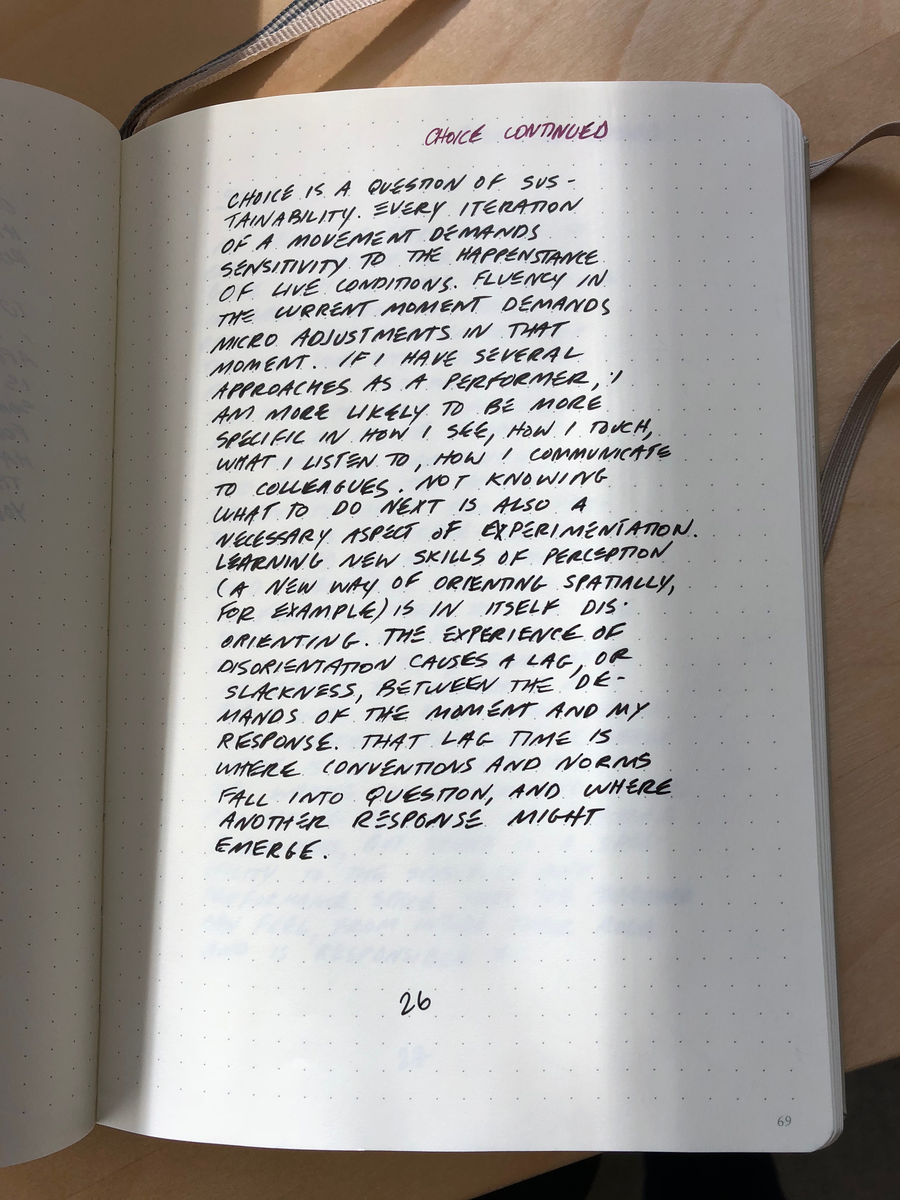 CHOICE CONTINUED
CHOICE IS A QUESTION OF SUS-
TAINABILITY. EVERY ITERATION
OF A MOVEMENT DEMANDS
SENSITIVITY TO THE HAPPENSTANCE
OF LIVE CONDITIONS. FLUENCY IN
THE CURRENT MOMENT DEMANDS
MICRO ADJUSTMENTS IN THAT
MOMENT. IF I HAVE SEVERAL
APPROACHES AS A PERFORMER, I
AM MORE LIKELY TO BE MORE
SPECIFIC IN HOW I SEE, HOW I TOUCH,
WHAT I LISTEN TO, HOW I COMMUNICATE
TO COLLEAGUES. NOT KNOWING
WHAT TO DO NEXT IS ALSO A
NECESSARY ASPECT OF EXPERIMENTATION.
LEARNING NEW SKILLS OF PERCEPTION
(A NEW WAY OF ORIENTING SPATIALLY,
FOR EXAMPLE) IS IN ITSELF DIS-
ORIENTING. THE EXPERIENCE OF
DISORIENTATION CAUSES A LAG, OR
SLACKNESS, BETWEEN THE DE-
MANDS OF THE MOMENT AND MY
RESPONSE. THAT LAG TIME IS
WHERE CONVENTIONS AND NORMS
FALL INTO QUESTION, AND WHERE
ANOTHER RESPONSE MIGHT
EMERGE.
26
69